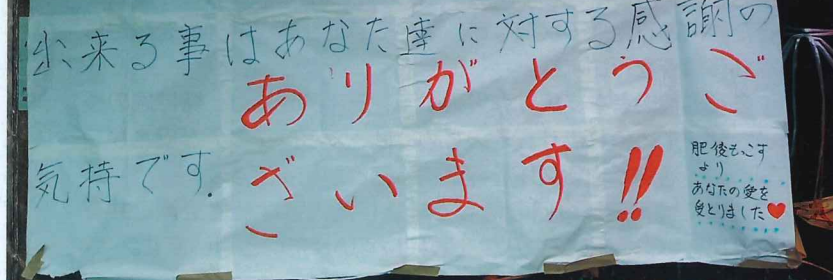 出来る事はあなた達に対する感謝の
ありがとうご
気持です.
ざいます!!
肥後もっこす
より
あなたの愛を
受とりました♥